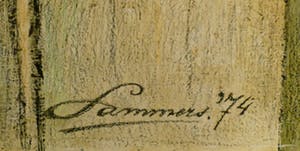 Sammers. '74